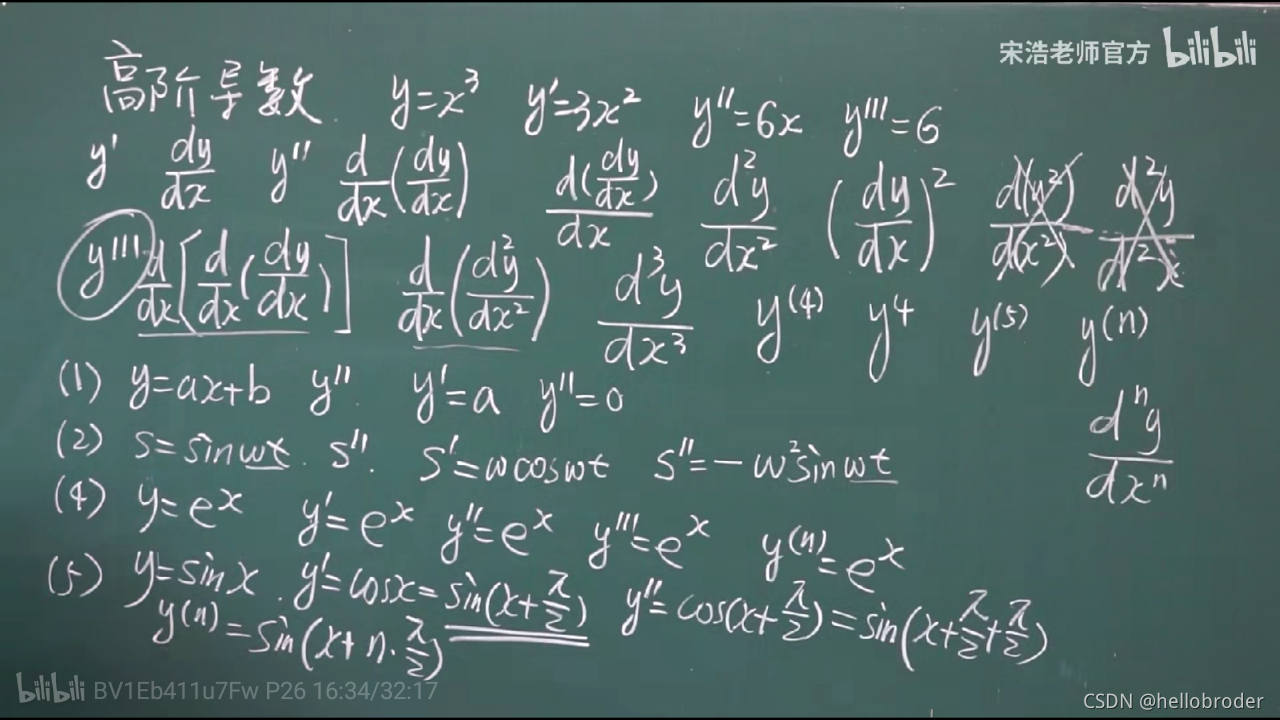 宋浩老师官方 bilibili
高阶导数 y=x³ y'=3x² y''=6x y'''=6
y' dy/dx y'' d/dx(dy/dx) d(dy/dx)/dx d²y/dx² (dy/dx)² d(y²)/d(x²) d²y/d²x
y''' d/dx[d/dx(dy/dx)] d/dx(d²y/dx²) d³y/dx³ y⁽⁴⁾ y⁴ y⁽⁵⁾ y⁽ⁿ⁾
(1) y=ax+b y'' y'=a y''=0
dⁿy/dxⁿ
(2) s=sinwt. s''. s'=wcoswt s''=-w²sinwt
(4) y=eˣ y'=eˣ y''=eˣ y'''=eˣ y⁽ⁿ⁾=eˣ
(5) y=sinx. y'=cosx=sin(x+π/2) y''=cos(x+π/2)=sin(x+π/2+π/2)
y⁽ⁿ⁾=sin(x+n·π/2)
bilibili BV1Eb411u7Fw P26 16:34/32:17
CSDN @hellobroder